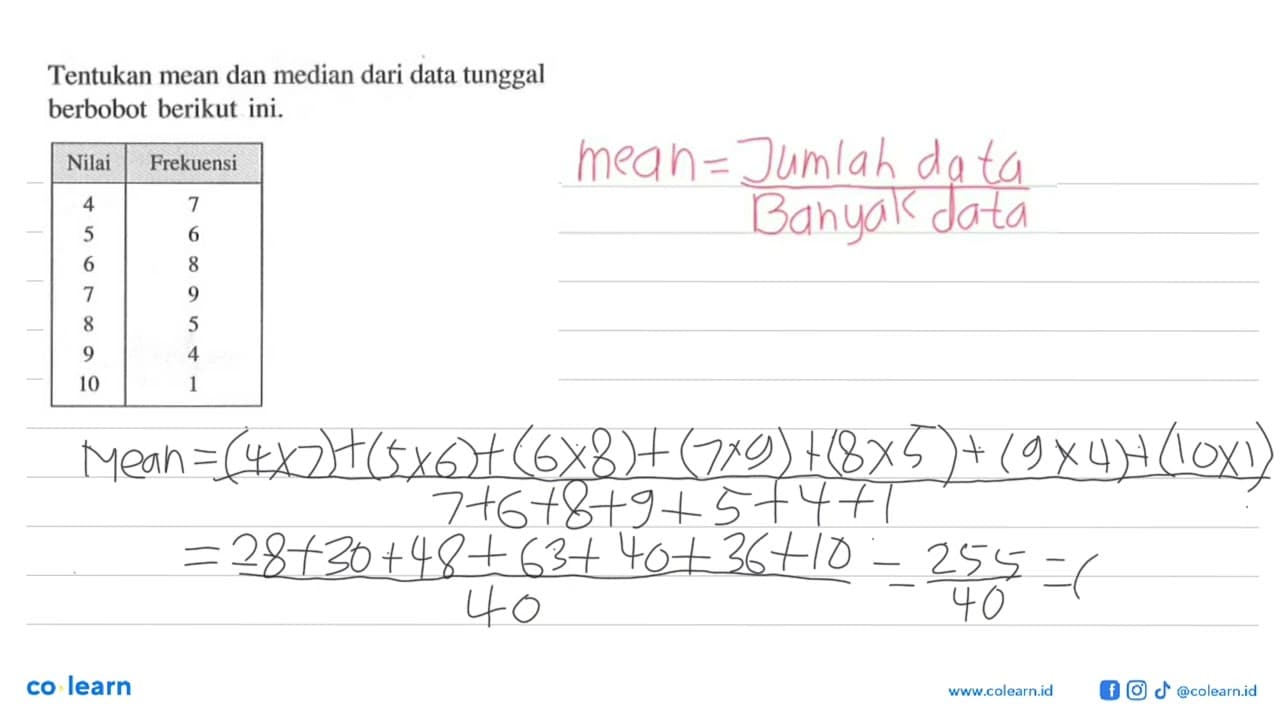 Tentukan mean dan median dari data tunggal
berbobot berikut ini.
Nilai Frekuensi
4 7
5 6
6 8
7 9
8 5
9 4
10 1
mean = Jumlah data
Banyak data
Mean = (4x7)+(5x6)+(6x8)+(7x9)+(8x5)+(9x4)+(10x1)
7+6+8+9+5+4+1
= 28+30+48+63+40+36+10 = 255 = (
40 40
co learn
www.colearn.id @colearn.id